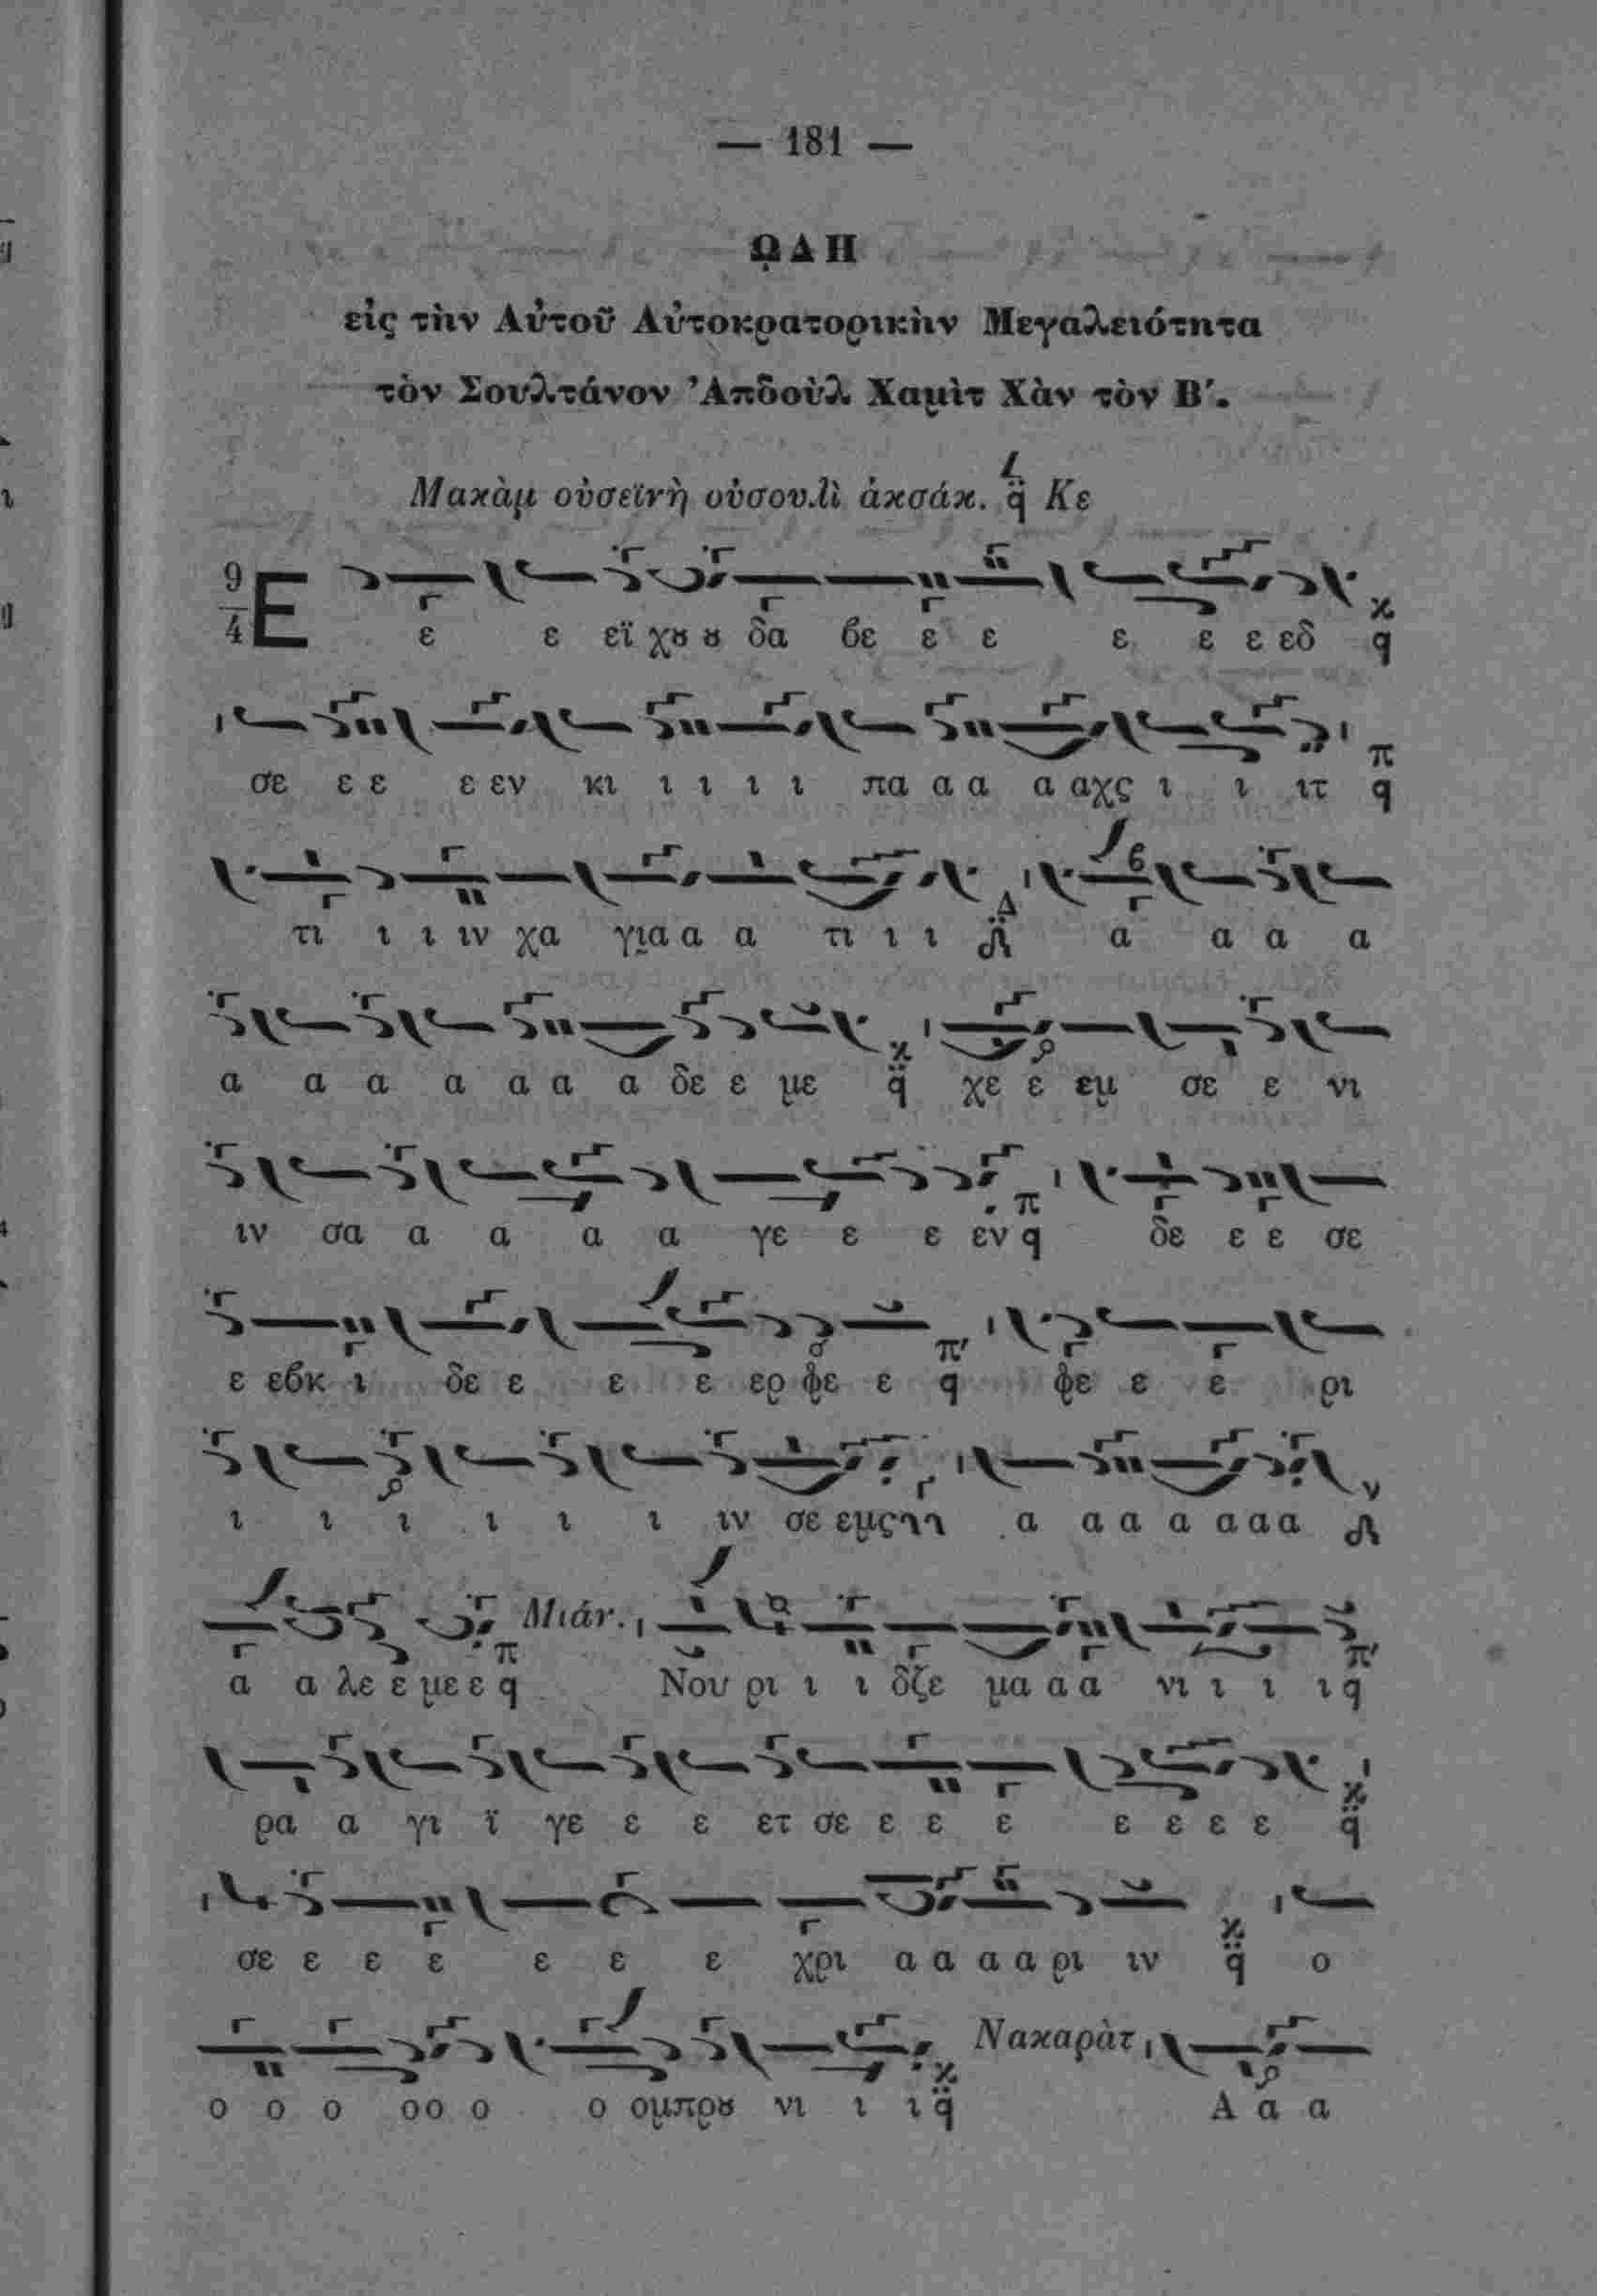 — 181 —
ῼΔΗ
εἰς τὴν Αὐτοῦ Αὐτοκρατορικὴν Μεγαλειότητα
τὸν Σουλτάνον Ἀπδοὺλ Χαμὶτ Χὰν τὸν Β′.
Μακὰμ οὑσεϊνὴ οὑσουλὶ ἀκσάκ. Κε
9/4 Ε ε ε εϊ χȣ ȣ δα βε ε ε ε ε ε εδ
σε ε ε ε εν κι ι ι ι ι πα α α α αχς ι ι ιτ
τι ι ι ιν χα για α α τι ι ι α α α α
α α α α α α α δε ε με χε ε εμ σε ε νι
ιν σα α α α α γε ε ε εν δε ε ε σε
ε εβκ ι δε ε ε ε ερ φε ε φε ε ε ρι
ι ι ι ι ι ι ιν σε εμς α α α α α α α
α α λε ε με ε Μιάν. Νου ρι ι ι δζε μα α α νι ι ι ι
ρα α γι ϊ γε ε ε ετ σε ε ε ε ε ε ε ε
σε ε ε ε ε ε ε χρι α α α α ρι ιν ο
ο ο ο ο ο ο ο ομπρȣ νι ι ι Νακαρὰτ Α α α